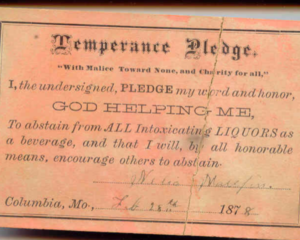 Temperance Pledge.
"With Malice Toward None, and Charity for all,"
I, the undersigned, PLEDGE my word and honor,
GOD HELPING ME,
To abstain from ALL Intoxicating LIQUORS as
a beverage, and that I will, by all honorable
means, encourage others to abstain.
Columbia, Mo., Feb 187